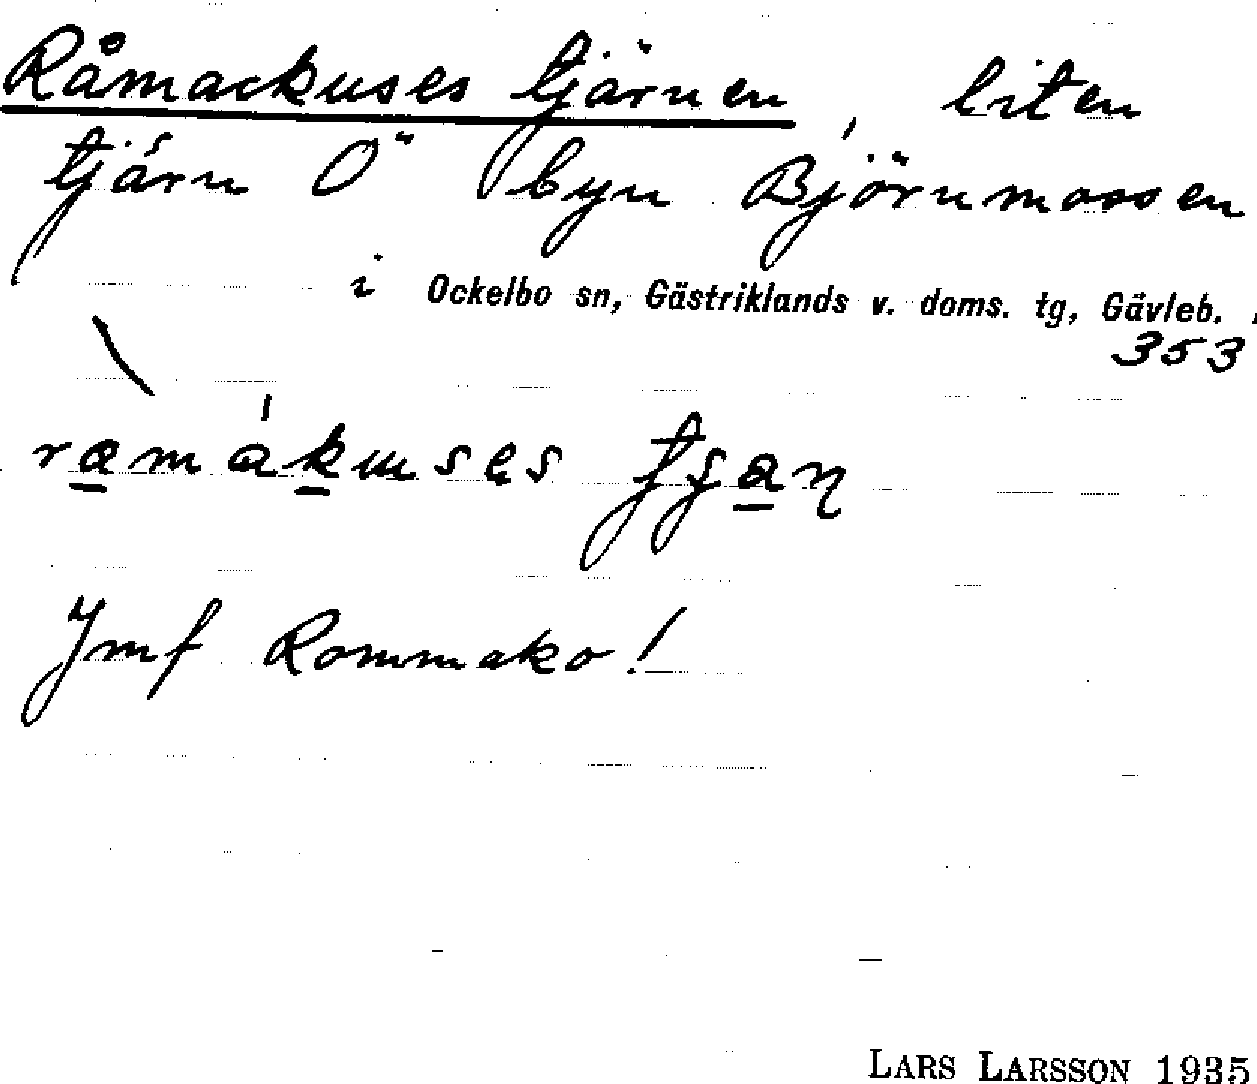 Råmackuses tjärnen, liten
tjärn Ö byn Björnmossen
i Ockelbo sn, Gästriklands v. doms. tg, Gävleb.
353
Jmf Rommako!
LARS LARSSON 1935